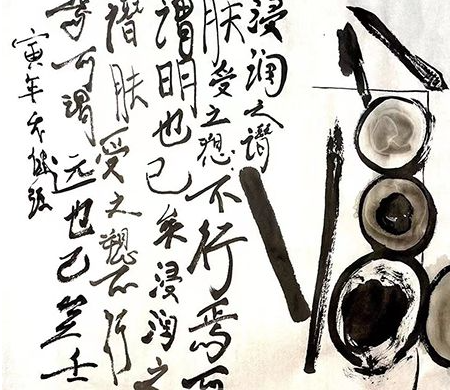 浸润之谮
肤受之愬不行焉可
谓明也已矣浸润之
谮肤受之愬不行
焉可谓远也已壬
寅年